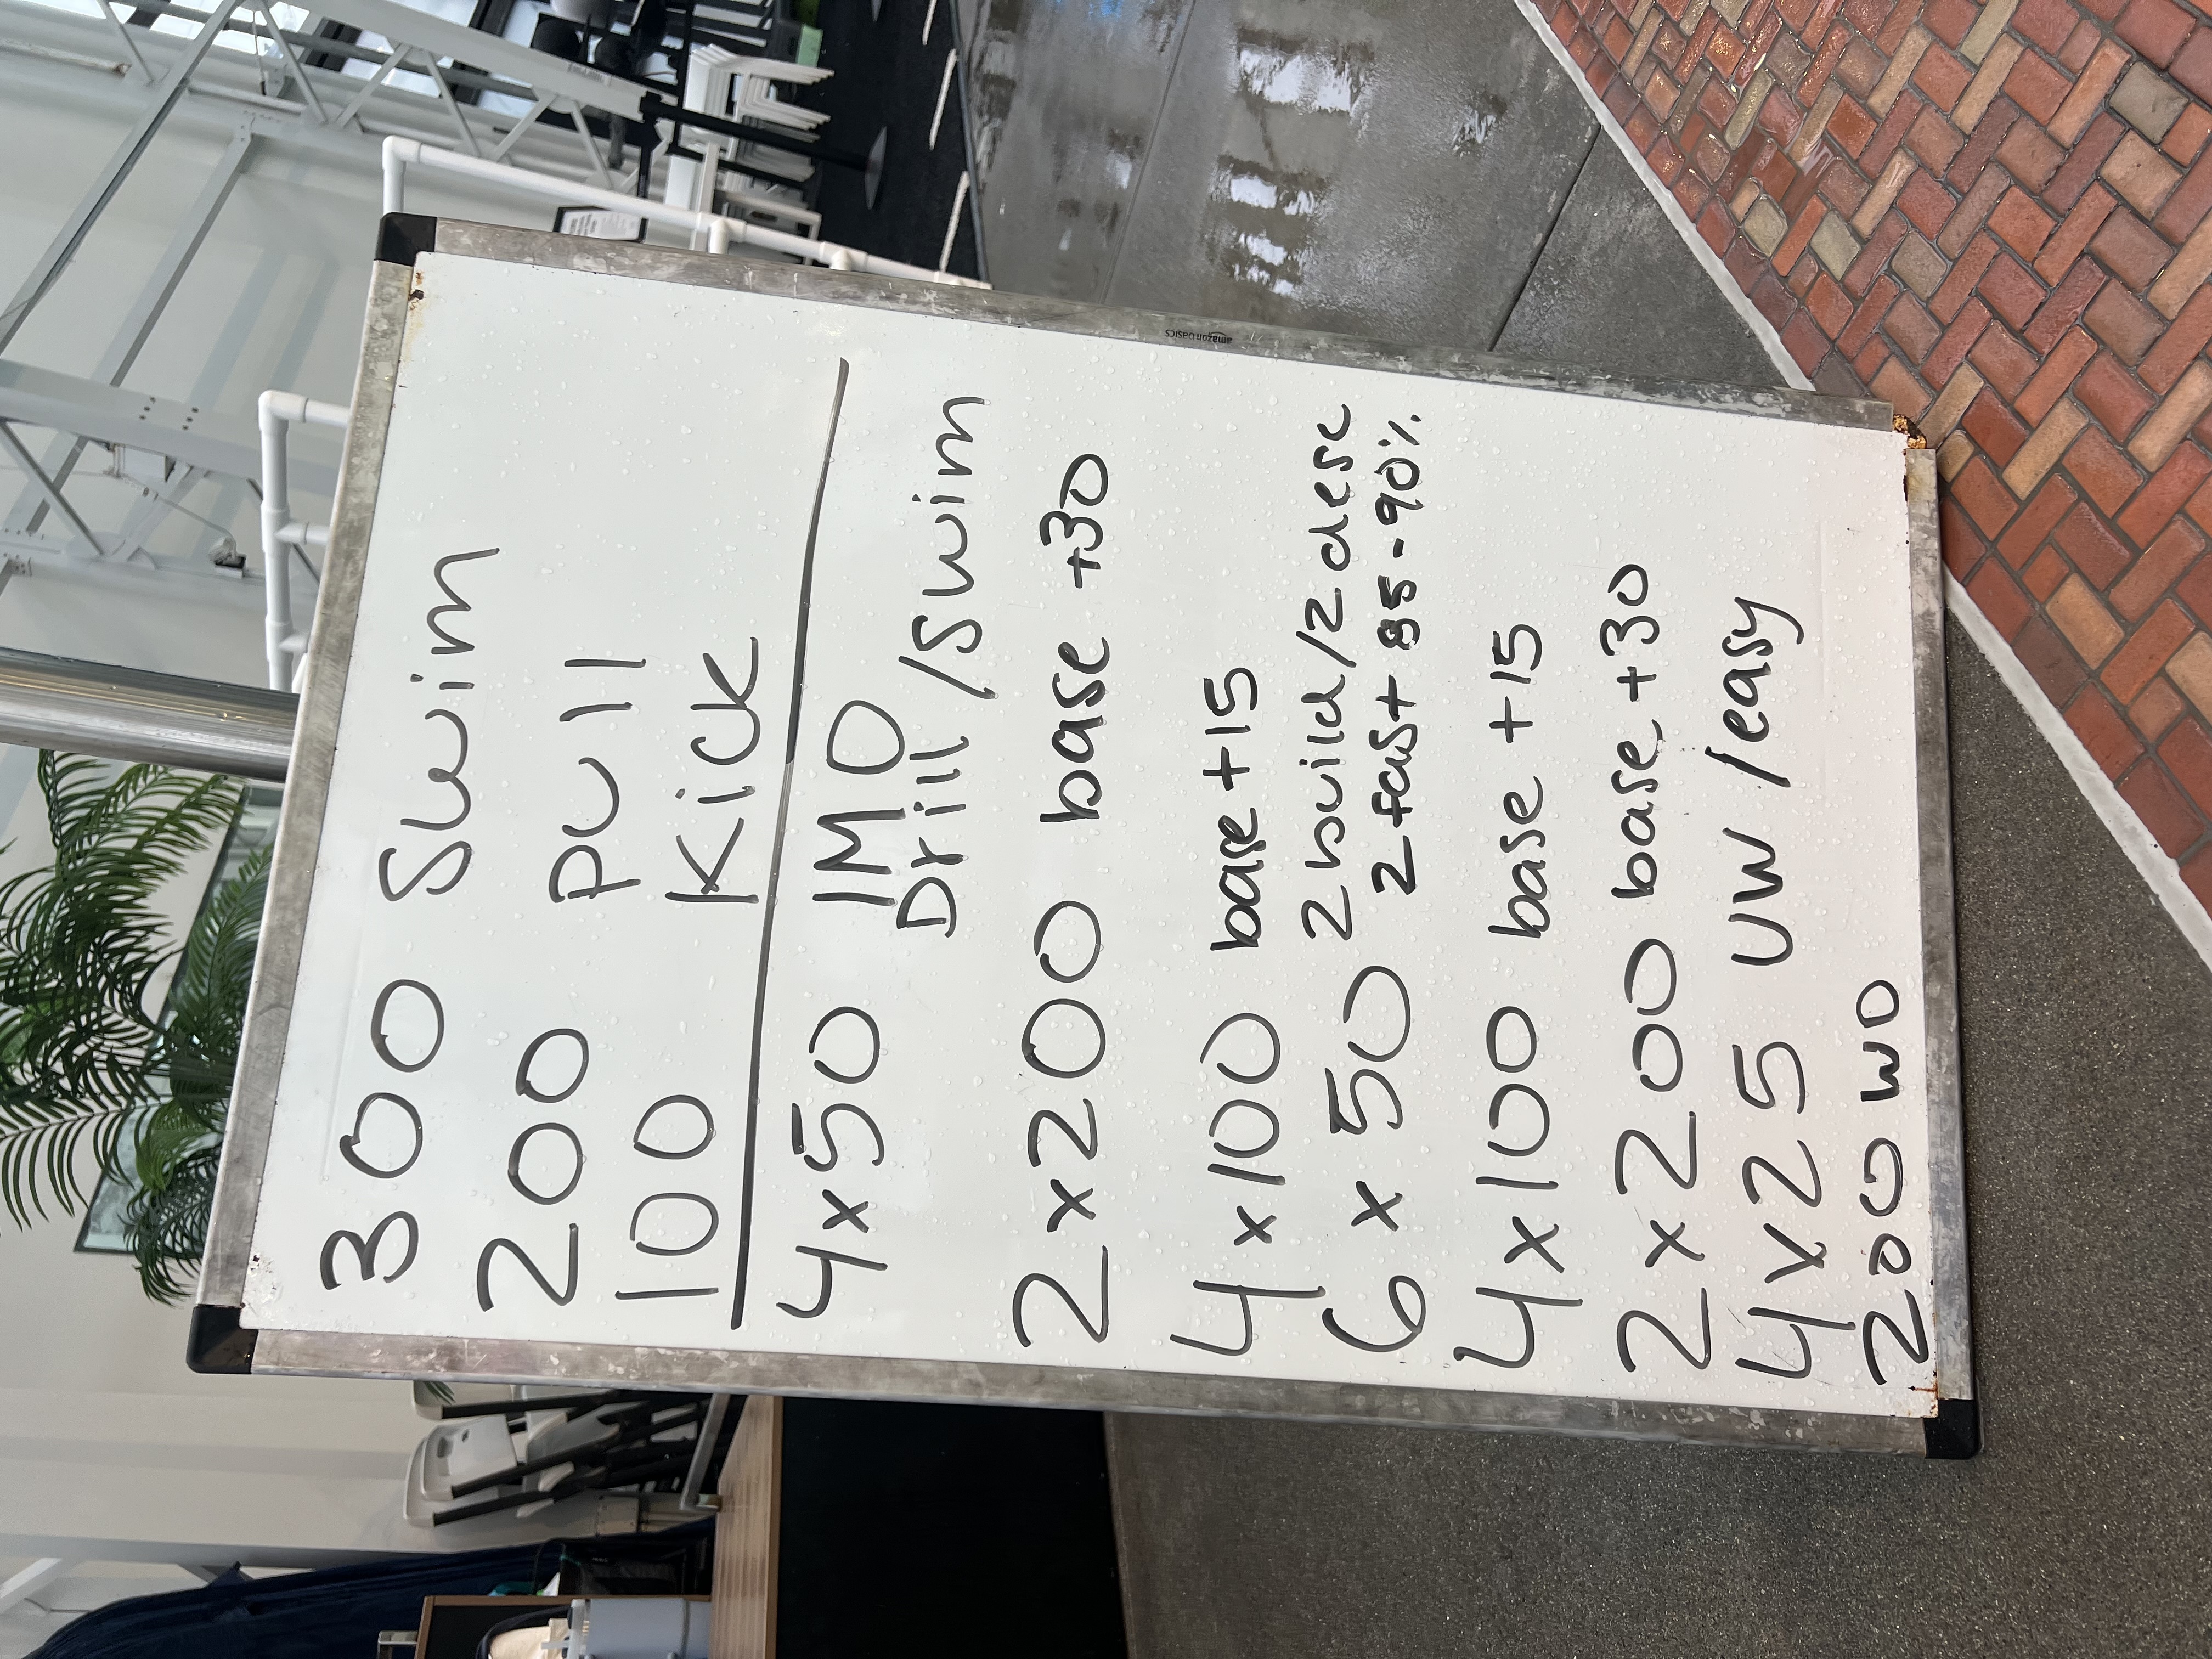 300 Swim
200 pull
100 Kick
4x50 IMO
Drill/Swim
2x200 base +30
4x100 base +15
6x50 2 build/2 desc
2 fast 85-90%
4x100 base +15
2x200 base +30
4x25 UW/easy
200 WD
amazon basics